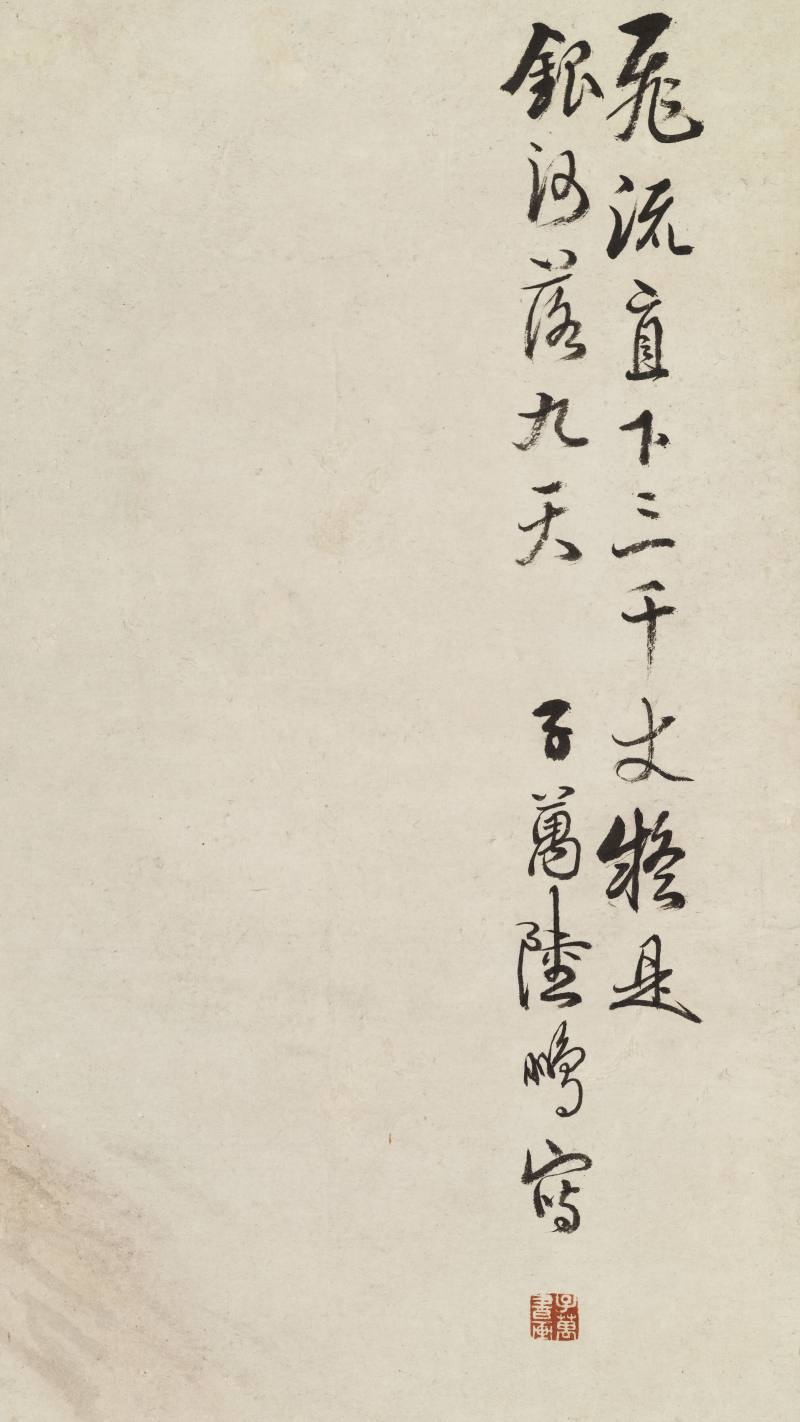 飛流直下三千丈疑是
銀河落九天　子萬陸鵬寫
子萬書画